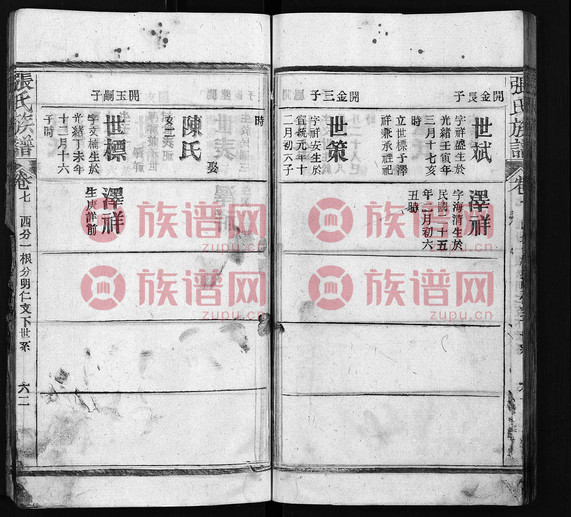 張氏族譜
卷七
開金長子
世斌
字祥盛生於
光緒壬寅年
三月十七亥
時
立世標子澤
祥兼承祧祀
澤祥
字海清生於
民國二十五
年二月初六
丑時
開金三子
世策
字祥安生於
宣統元年十
二月初六子
時
娶
陳氏
亥二
開玉嗣子
世標
字文楠生於
光緒丁未年
十二月十六
子時
澤祥
生庚詳前
張氏族譜
卷七
西分一根分明仁支下世系
六二
族谱网
zupu.cn
族谱网
zupu.cn
族谱网
zupu.cn
族谱网
zupu.cn
族谱网
zupu.cn
族谱网
zupu.cn